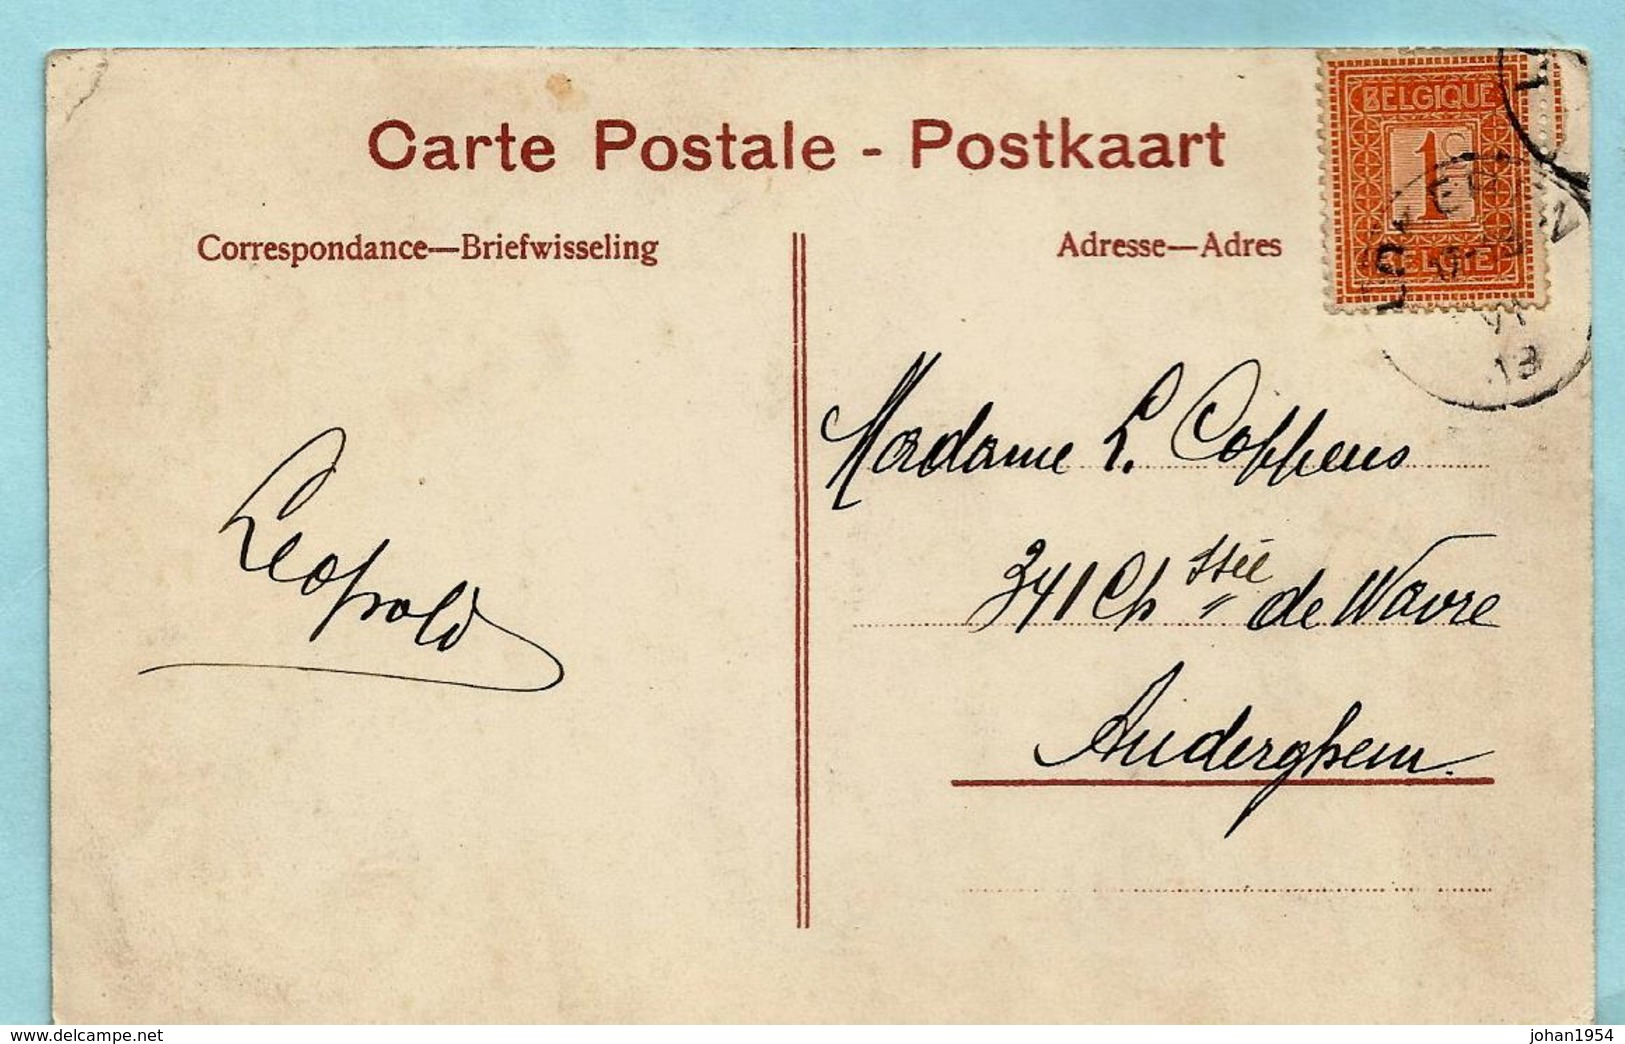 Carte Postale - Postkaart
Correspondance—Briefwisseling
Adresse—Adres
BELGIQUE
1c
BELGIË
13
Madame L. Coppens
341 Ch stée de Wavre
Auderghem.
Leopold
www.delcampe.net
johan1954